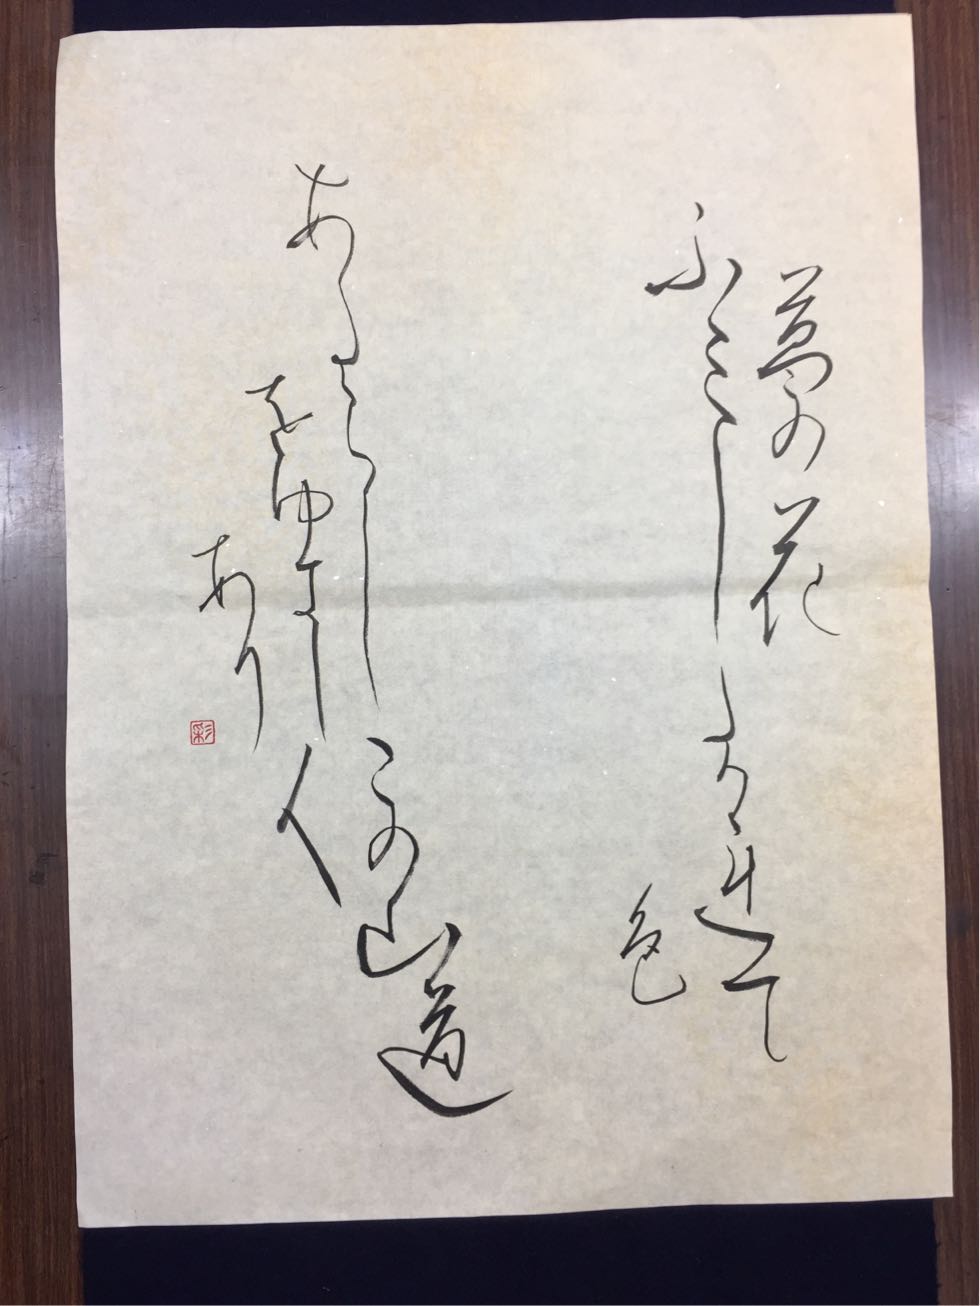 葛の花
ふみしたかれて
色
あたらしこの山道
をゆきし人
あり
彩